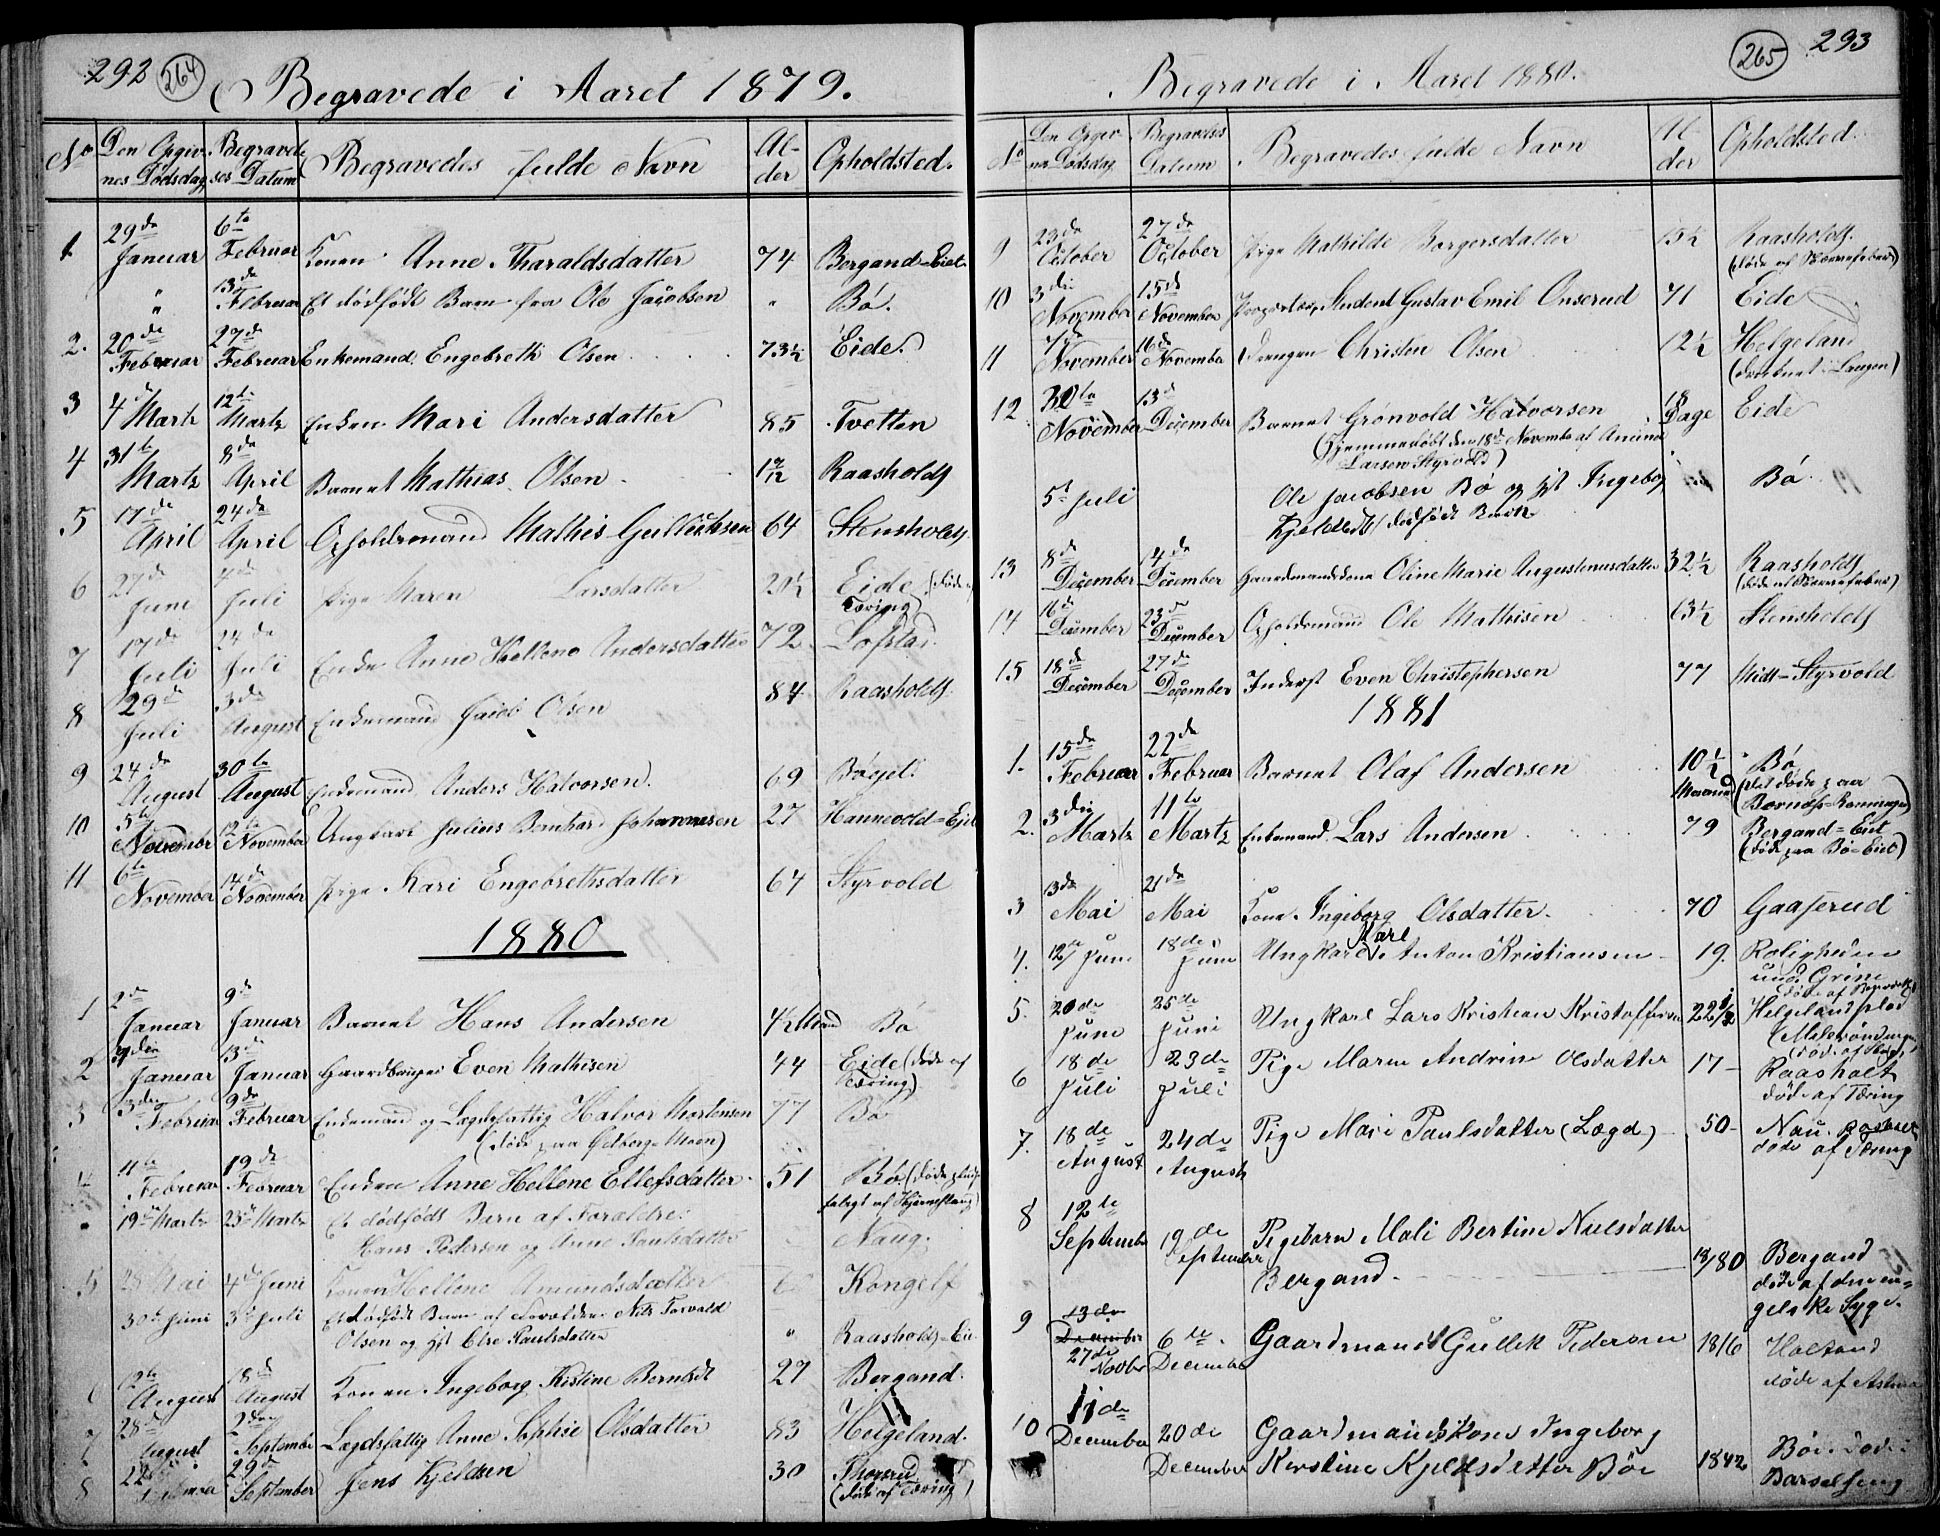 292 264
Begravede i Aaret 1879.
No Den Opgiv- Begravel- Begravedes fulde Navn Al- Opholdsted.
nes Dødsdag ses Datum der
29de 6te
1 Januar Februar Konen Anne Tharaldsdatter 74 Bergand-Eiet
" 13de Februar Et dødfødt Barn fra Ole Jacobsen " Bø.
20de 27de
2. Februar Februar Enkemand Engebreth Olsen 73½ Eide.
3 4de Martz 12te Martz Enken Mari Andersdatter 85 Tvetten
31te 8de
4 Martz April Barnet Mathias Olsen 1 9/12 Raasholdt
17de 24de
5 April April Opholdsmand Mathis Gulliksen 64 Stensholdt
27de 4de
6 Juni Juli Pige Maren Larsdatter 20½ Eide (døde af
Tæring)
17de 24de
7 Juli Juli Enke Anne Hellene Andersdatter 72 Lofstad.
29de 3de
8 Juli August Enkemand Jacob Olsen 84 Raasholdt
24de 30te
9 August August Enkemand Anders Halvorsen. 69 Bøgel.
5te 12te
10 November November Ungkarl Julius Bernhard Johannesen 27 Hannevold-Eiet
6te 14de
11 November November Pige Kari Engebrethsdatter 64 Styrvold
1880
2de 9de
1 Januar Januar Barnet Hans Andersen 4½ Maaned Bø
13de
2 Januar Januar Gaardbruger Even Mathisen 44 Eide (døde af
Tæring)
3die 9de
3 Februar Februar Enkemand og Lægdsfattig Halvor Mortensen 77 Bø
(døde paa Gjelberg-Moen)
11te 19de
4 Februar Februar Enken Anne Hellene Ellefsdatter 51 Bø (døde pludse
feligt af Hjerneslag)
" 19de Martz 23de Martz Et dødfødt Barn af Forældre:
Hans Pedersen og Anne Paulsdatter Naug.
5 28 Mai 4de Juni Konen Hellene Amundsdatter Kongelf
30te Juni 3de Juli Et dødfødt Barn af Forældre Nils Torvald
Olsen og Hst Else Paulsdatter " Raasholdt-Eie
12te 18de
6 August August Konen Ingeborg Kistine Berntsdt 27 Bergand.
28de 2den
7 August September Lægdsfattig Anne Sophie Olsdatter 83 Helgeland.
22de 29de
8 September September Jens Kjeldsen 30 Thorsrud
(døde af Tæring)
265 293
Begravede i Aaret 1880.
No Den Opgiv- Begravelses Begravedes fulde Navn Al- Opholdsted.
ne Dødsdag Datum der
23de 27de
9 October October Pige Mathilde Borgersdatter 15½ Raasholdt.
(døde af Nervefeber)
3die 15de
10 November November Proprietær, Student Gustav Emil Onserud 71 Eide
16de
11 November November Drengen Christen Olsen 12½ Helgeland
(druknet i Laugen)
30te 13de
12 November December Barnet Grønvold Halvorsen 18 Dage Eide
(Hjemmedøbt den 18de Novembe af Amund
Larsen Styrvold)
5te Juli Ole Jacobsen Bø og Hst Ingeborg Bø
Kjeldsdt dødfødt Barn
8de 14de
13 December December Gaardmandskone Oline Marie Augustenusdatter 32½ Raasholdt
(døde af Nervefeber)
16de 23de
14 December December Opholdsmand Ole Mathisen 63½ Stensholdt
18de 27de
15 December December Inderst Even Christophersen 77 Midt-Styrvold
1881
15de 22de
1. Februar Februar Barnet Olaf Andersen 10½ Maaned Bø
(det døde paa
Bornæss-Rønningen)
3die 11te
2. Martz Martz Enkemand Lars Andersen 79 Bergand-Eiet
(døde paa Bø-Eiet)
13de 21de
3 Mai Mai Kone Ingeborg Olsdatter. 70 Gaaserud
4. 12te Juni 18de Juni Ungkarl Karl Anton Kristiansen 19. Roligheden
und. Grine
20de 25de
5. Juni Juni Ungkarl Lars Kristian Kristoffersen 22½ Helgelandsplad
18de 23de
6 Juli Juli Pige Maren Andrine Olsdatter 17 Raasholt
død af Tæring
18de 24de
7. August August Pige Mari Paulsdatter (Lægd) 50 Nau.
døde af Tæring
12te
8 September 19de September Pigebarn Mali Bertine Nielsdatter
Bergand. 18/80 Bergand
døde af den en-
gelske Syge.
13de
9 December 6te Gaardmand Gullik Pedersen 1816 Holtand
27de Novbr December døde af Astma
11de
10 December 20de Gaardmandskone Ingeborg
December Kirstine Kjeldsdatter Böe 1842 Böe døde i
Barselseng